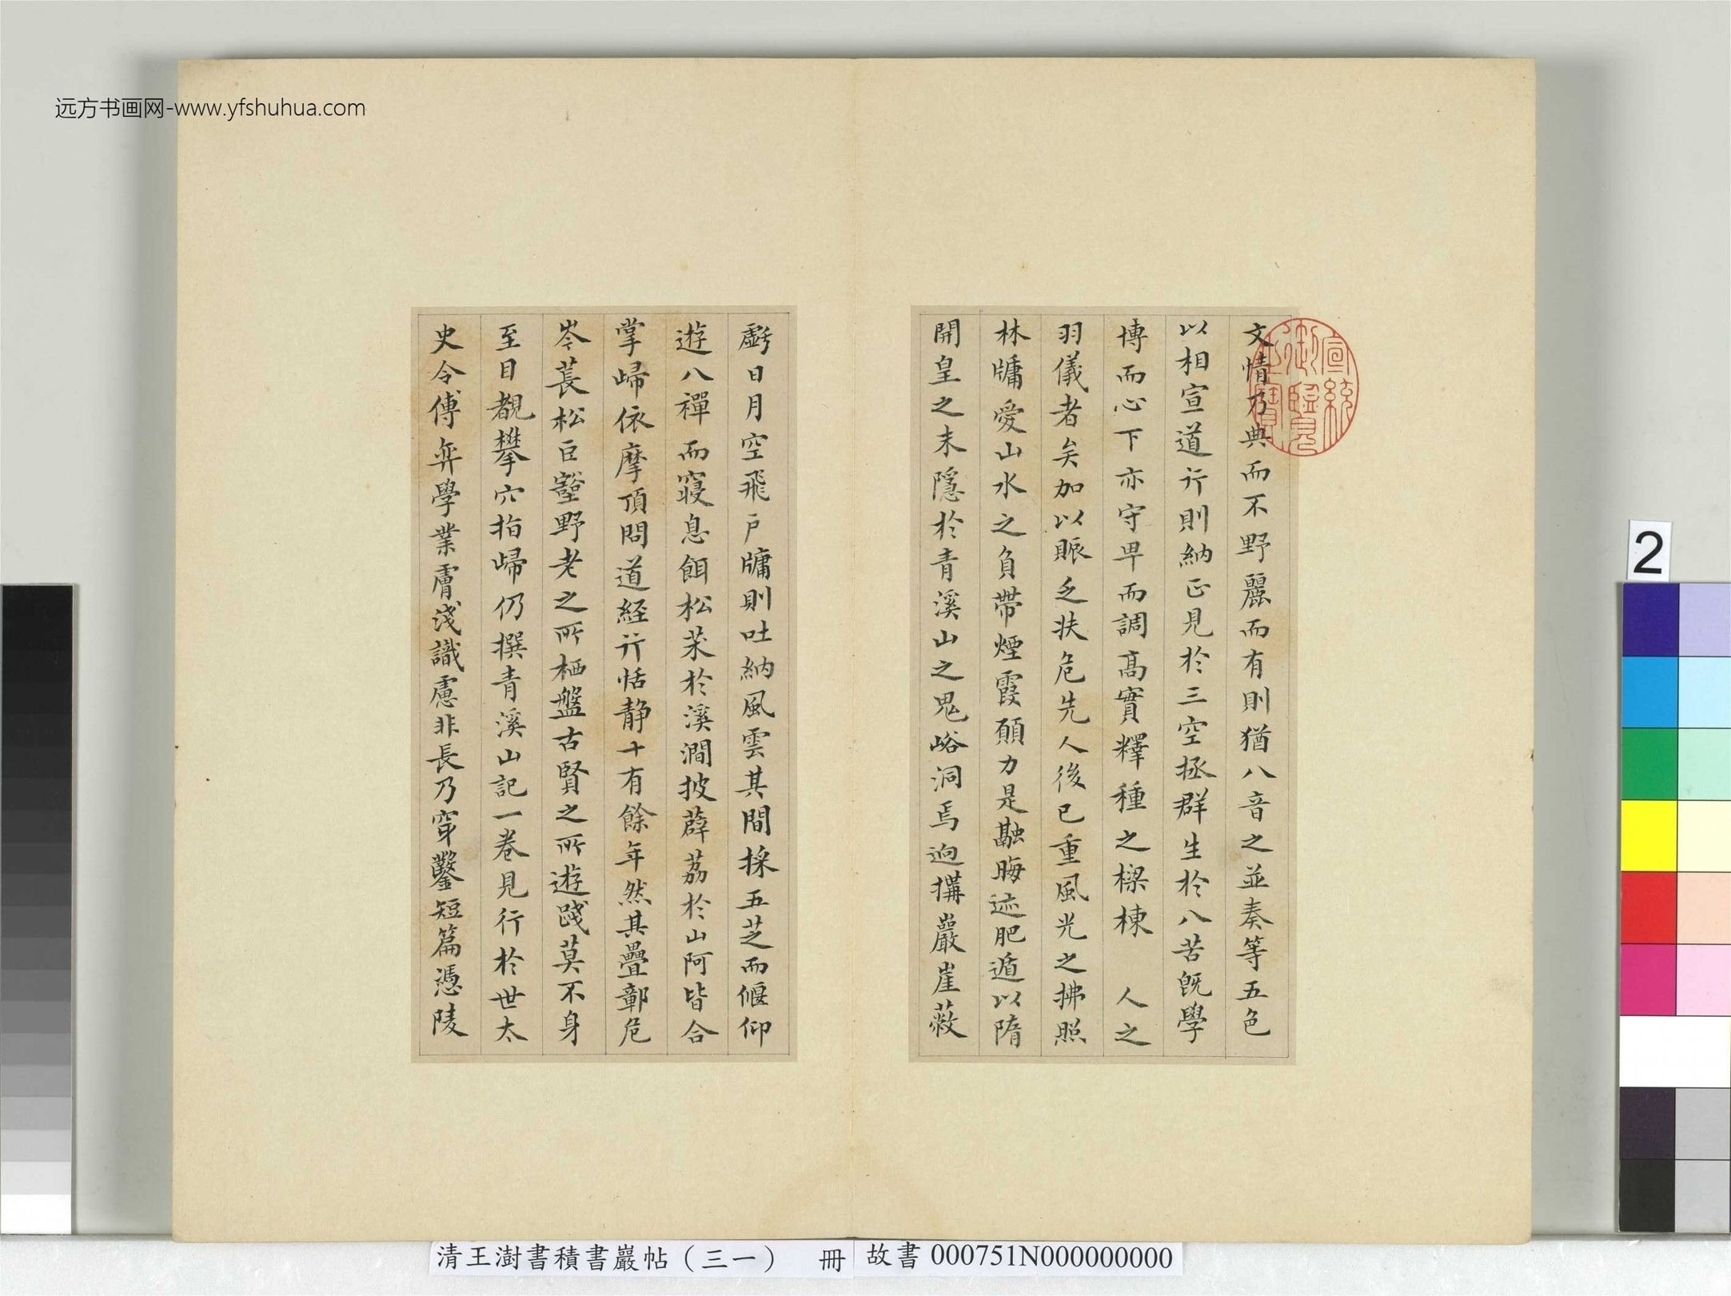 远方书画网-www.yfshuhua.com
宣統御覽之寶
文情乃典而不野麗而有則猶八音之並奏等五色
以相宣道行則納正見於三空拯群生於八苦既學
博而心下亦守卑而調髙實釋種之樑棟 人之
羽儀者矣加以賑乏扶危先人後已重風光之拂照
林牖愛山水之負帶煙霞願力是融晦迹肥遁以隋
開皇之末隱於青溪山之鬼峪洞焉迥搆巖崖蔽
虧日月空飛戶牖則吐納風雲其間採五芝而偃仰
遊八禪而寢息餌松朮於溪澗披薜荔於山阿皆合
掌歸依摩頂問道経行恬静十有餘年然其疊鄣危
岑萇松巨壑野老之所栖盤古賢之所遊踐莫不身
至目覩攀穴指歸仍撰青溪山記一卷見行於世太
史令傅弈學業膚淺識慮非長乃穿鑿短篇憑陵
2
清王澍書積書巖帖（三一） 冊 故書 000751N000000000